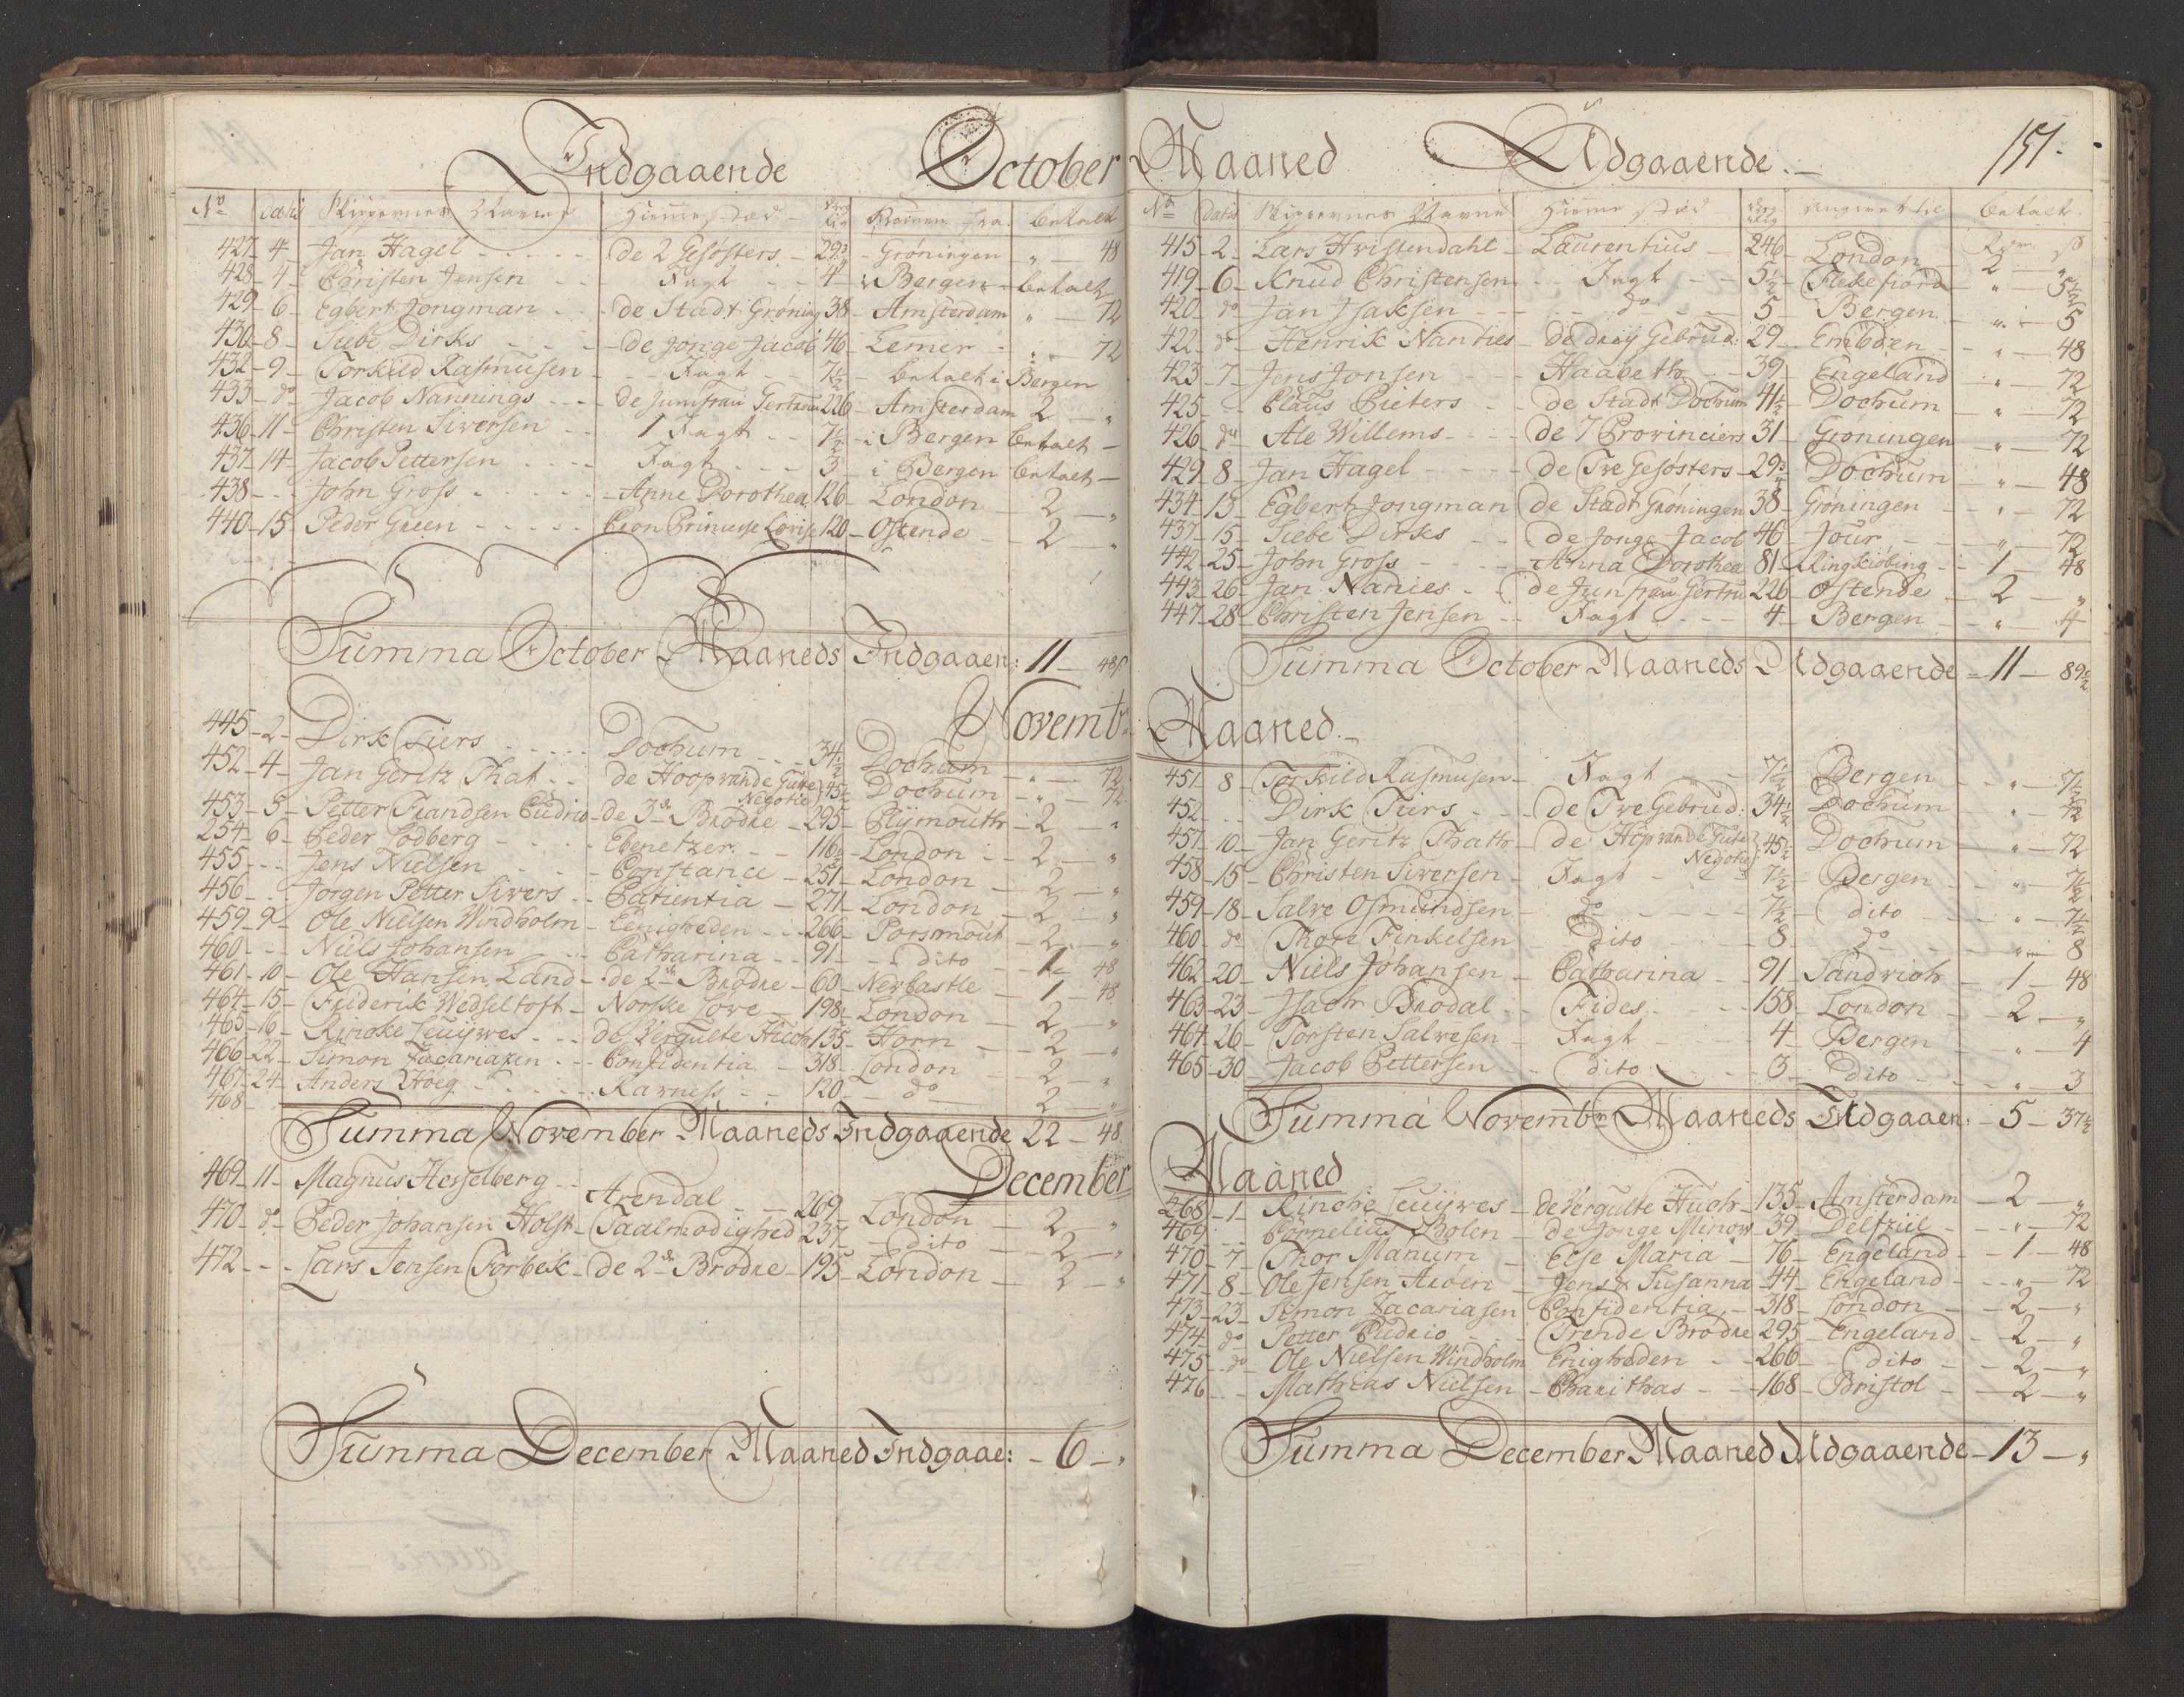 Indgaaende October
No Datis Skippernes Navne Hiemme stæd Dræg tig Kommen fra betalt
427 - 4 - Jan Hagel - - - - - de 2 Gesøsters - 29½ - Grøningen " - 48
428 - 4 - Christen Jensen - - - Jagt - - 4 - i Bergen - betalt
429 - 6 - Egbert Jongman - - de Stadt Grøning 38 - Amsterdam " - 72
430 - 8 - Siebe Dirks - - - - de Jonge Jacob 46 - Lemer - " - 72
432 - 9 - Torkild Rasmusen - - Jagt - - 7½ - betalt i Bergen
433 - do - Jacob Nannings - - - de Jumfrau Gertrau 226 - Amsterdam 2 - "
436 - 11 - Christen Siversen - - 1 Jagt - - 7½ - i Bergen betalt -
437 - 14 - Jacob Pettersen - - - - Jagt - - - 3 - i Bergen betalt -
438 - - - John Gross - - - - - Anne Dorothea 126 - London - 2 - "
440 - 15 - Peder Green - - - - - Cron Princesse Lovise 120 - Ostende - - 2 - "
Summa October Maaneds Indgaaen: 11 - 48ß
Novembr:
445 - 2 - Dirk Tiers - - - - - Dochum - - - 34½ Dochum - " - 72
452 - 4 - Jan Geritz That - - de Hoop van de Gute Negotie 45½ Dochum - " - 72
453 - 5 - Petter Frandsen Cudrio - de 3de Brødre - 295 - Plymouth - 2 - "
254 - 6 - Peder Lodberg - - - - Ebenetzer - - 116½ - London - - 2 - "
455 - - - Jens Nielsen - - - Constance - 251 - London - 2 - "
456 - - - Jørgen Petter Sivers - - Patientia - 271 - London - 2 - "
459 - 9 - Ole Nielsen Windholm - Eenigheden - - 266 - Porsmout - 2 - "
460 - - - Niels Johansen - - - Catharina - - 91 - - dito - 1 - 48
461 - 10 - Ole Hansen Land - de 2de Brødre - 60 - Newcastle - 1 - 48
464 - 15 - Friderik Wedseltoft - Norske Løve - 198½ London - 2 - "
465 - 16 - Rincke Leuywes - - - de Vergulte Huch 135 - Horn - 2 - "
466 - 22 - Simon Zacariazen - - - Confidentia - 318 - London - 2 - "
467 - 24 - Anders Høeg - - - - - Karness - - 120 - do - 2 - "
468
Summa November Maaneds Indgaaende 22 - 48
December
469 - 11 - Magnus Hesselberg - - Arendal - - 269 - London - 2 - "
470 - do - Peder Johansen Holst - Taalmodighed 237 - - dito - 2 - "
472 - - - Lars Jensen Forbek - de 2de Brødre - 195 - London - 2 - "
Summa December Maaned Indgaae: - 6 - "
Maaned Udgaaende. 151.
No Datis Skippernes Navne Hiemme stæd Dræg tig angivet til betalt.
415 - 2 - Lars Hvistendahl - Laurentius - 246 - London - 2 - "
419 - 6 - Knud Christensen - - Jagt - - 5½ - Flekefiord - " - 5½
420 - do - Jan Jsaksen - - - - do - - 5 - Bergen - " - 5
422 - do - Henrik Nanties - de drey Gebrud: 29 - Embden - " - 48
423 - 7 - Jens Jonsen - - Haabeth - - 39 - Engeland - " - 72
425 - - Claus Pieters - - de Stadt Dochum 41½ Dochum - " - 72
426 - do - Ale Willems - - - de 7 Provinciers 31 - Groningen - " - 72
429 - 8 - Jan Hagel - - - - de Tre Gesøsters - 29½ Dochum - " - 48
434 - 13 - Egbert Jongman de Stadt Grøningen 38 - Grøningen - " - 72
437 - 15 - Siebe Dirks - - de Jonge Jacob 46 - Jour - " - 72
442 - 25 - John Gross - - - Anna Dorothea 81 - Ringkiøbing - 1 - 48
443 - 26 - Jan Nanies - - de Junfrau Gertru 226 - Ostende - 2 - "
447 - 28 - Christen Jensen - - Jagt - - - 4 - Bergen - " - 4
Summa October Maaneds Udgaaende - 11 - 89½
Maaned.
451 - 8 - Torkild Rasmusen - Jagt - - 7½ Bergen - " - 7½
452 - - Dirk Tiers - - - de Tre Gebrud: 34½ Dochum - " - 72
457 - 10 - Jan Geritz Thath - de Hop van de Gute Negotie 45½ Dochum - " - 72
458 - 15 - Christen Siversen - Jagt - - 7½ - Bergen - " - 7½
459 - 18 - Salve Osmundsen - do - - - 7½ - dito - " - 7½
460 - do - Thore Finkelsen - Dito - - 8 - do - " - 8
462 - 20 - Niels Johansen - Catharina - 91 - Sandvich - 1 - 48
463 - 23 - Jsach Brodal - - Fides - - 158 - London - 2 - "
464 - 26 - Torsten Salvesen - Jagt - - 4 - Bergen - " - 4
465 - 30 - Jacob Pettersen - - Dito - - 3 - Dito - " - 3
Summa Novembr Maaneds Udgaaen: - 5 - 37½
Maaned
268 - 1 - Rinche Leuywes - de Vergulte Huch - 135 - Amsterdam - 2 - "
469 - - Cornelius Bolen - de Jonge Minow 39 - Delfziil - " - 72
470 - 7 - Thor Manum - Else Maria - 76 - Engeland - 1 - 48
471 - 8 - Ole Jensen - Jens & Susanna 44 - Engeland - " - 72
473 - 23 - Simon Zacariasen Confidentia - 318 - London - 2 - "
474 - do - Petter Cudrio - - Trende Brødre 295 - Engeland - 2 - "
475 - do - Ole Nielsen Windholm Enigheden - - 266 - dito - 2 - "
476 - - Mathias Nielsen - Charithas - - 168 - Bristol - 2 - "
Summa December Maaned Udgaaende - 13 - "